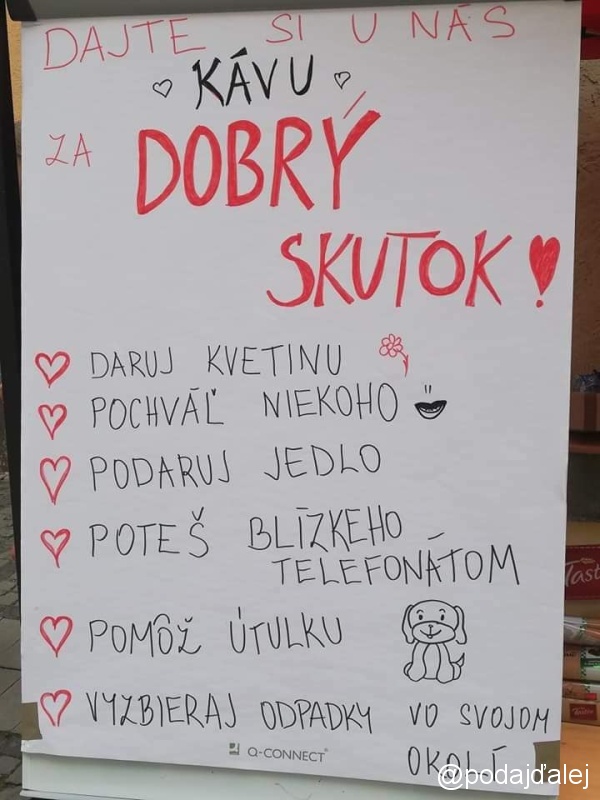 DAJTE SI U NÁS
KÁVU
ZA DOBRÝ
SKUTOK!
DARUJ KVETINU
POCHVÁĽ NIEKOHO
PODARUJ JEDLO
POTEŠ BLÍZKEHO
TELEFONÁTOM
POMÔŽ ÚTULKU
VYZBIERAJ ODPADKY VO SVOJOM
OKOLÍ
Q-CONNECT®
Tast
@podajďalej